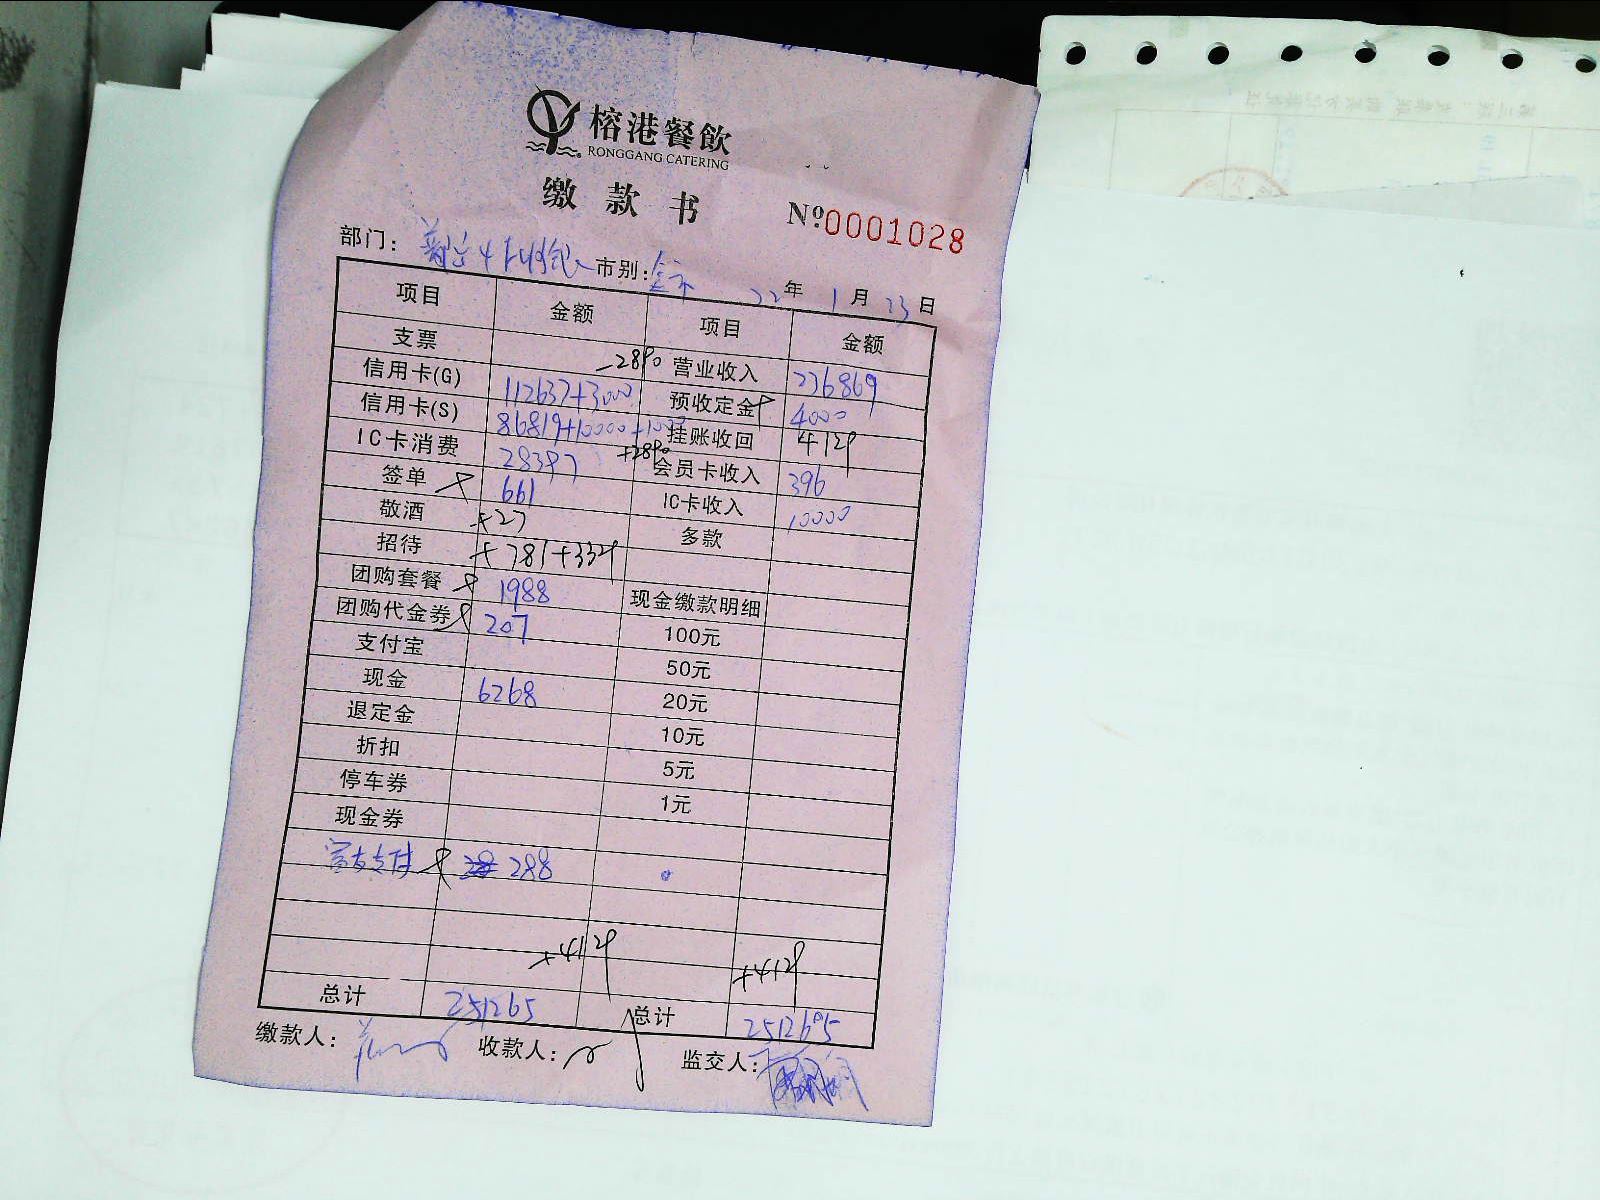 榕港餐飲
RONGGANG CATERING
缴款书 Nº0001028
部门： 市别: 全市 22年1月23日
项目 金额 项目 金额
支票 -2890 营业收入 236869
信用卡(G) 112637+3000 预收定金 4000
信用卡(S) 86819+10000+1000 挂账收回 4129
IC卡消费 28397 +2890 会员卡收入 396
签单 661 IC卡收入 10000
敬酒 +27 多款
招待 +781+3329
团购套餐 1988 现金缴款明细
团购代金券 207 100元
支付宝 50元
现金 6268 20元
退定金 10元
折扣 5元
停车券 1元
现金券
支付 288
+4129 +4129
总计 251265 总计 251265
缴款人： 收款人： 监交人：